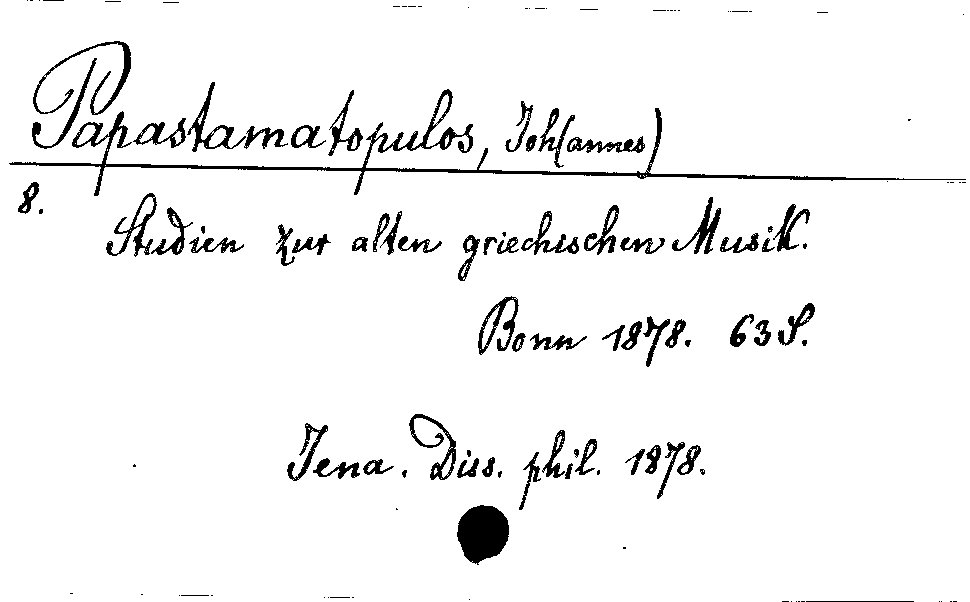 Papastamatopulos, Joh(annes)
8.
Studien zur alten griechischen Musik.
Bonn 1878. 63 S.
Jena. Diss. phil. 1878.